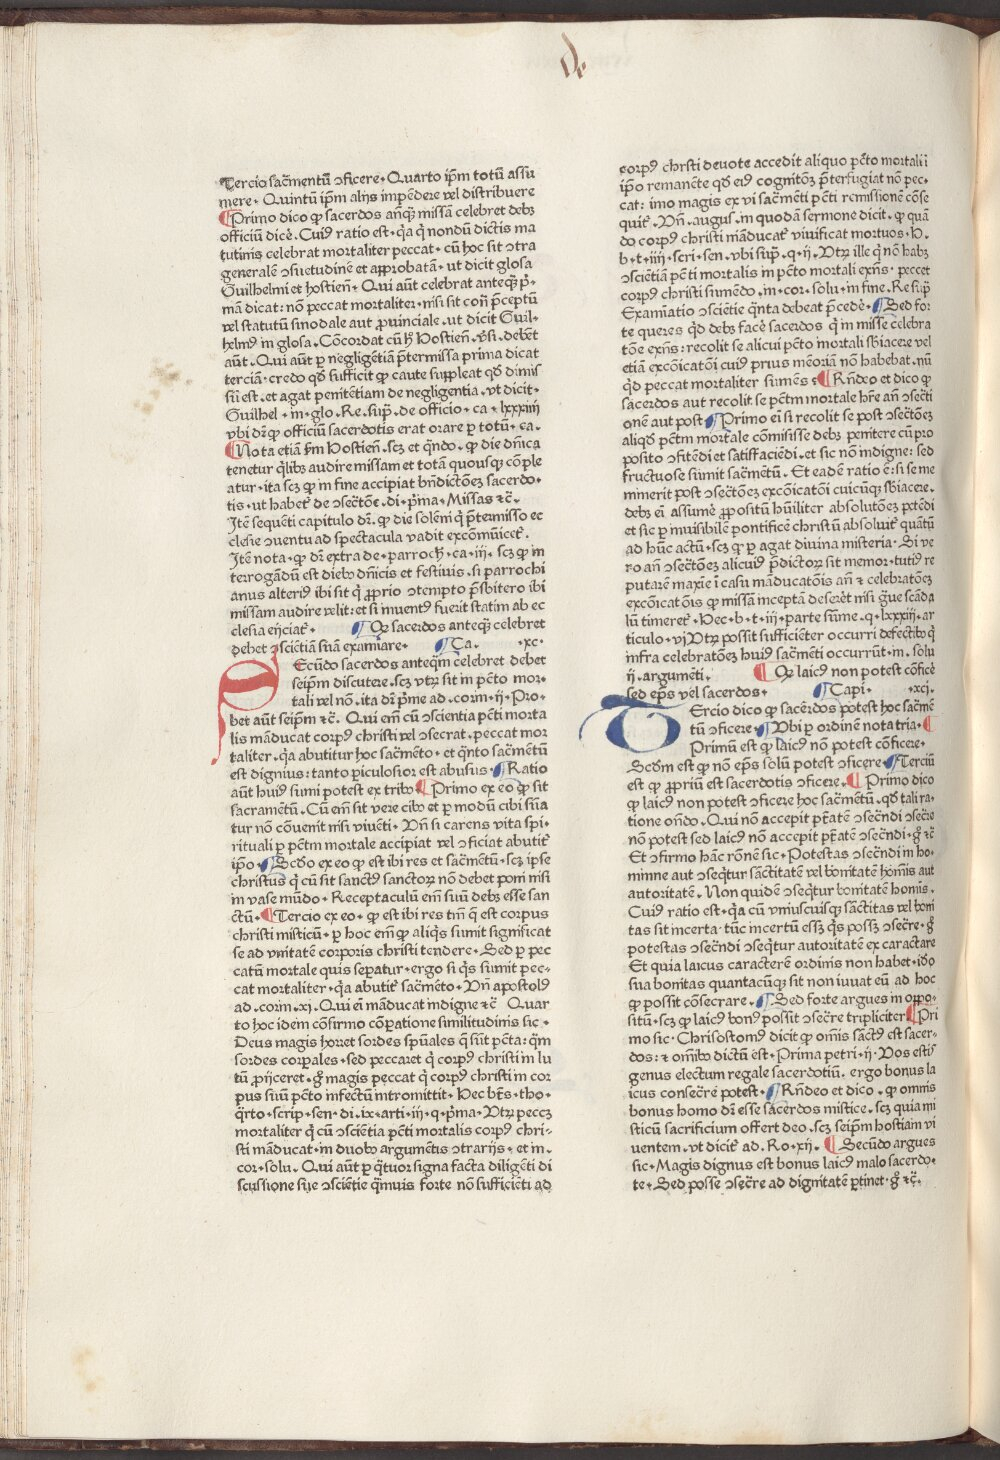 de
Tercio sac̃mentũ ↄficere. Quarto ip̃m totũ assu
mere. Quintũ ip̃m alijs impēdere vel distribuere
¶ Primo dico ꝙ sacerdos añꝗ missã celebret debꝫ
officiũ dicẽ. Cuiꝰ ratio est. q̃a q̃ nondũ dictis ma
tutinis celebrat mortaliter peccat. cũ hoc sit ↄtra
generalẽ ↄsuetudinẽ et approbatã. ut dicit glosa
Guilhelmi et hostieñ. Qui aũt celebrat anteqꝫ p̃.
mã dicat: nõ peccat mortaliter. nisi sit coñ p̃ceptũ
vel statutũ sinodale aut ꝓuinciale. ut dicit Guil.
helmꝰ in glosa. Cõcordat cũ hꝰ Hostieñ. v̉si. debẽt
aũt. Qui aũt ꝑ negligẽtiã p̃termissa prima dicat
terciã. credo qđ sufficit ꝙ caute suppleat qđ dimis
sũ est. et agat penitẽtiam de negligentia. vt dicit.
Guilhel. in. glo. Re. sup̃. de officio. ca. lxxxiiij
vbi dr̃ ꝙ officiũ sacerdotis erat orare ꝑ totũ. ca.
¶ Nota etiã fm̃ Hostieñ. scꝫ et q̃ndo. ꝙ die dñica
tenetur q̃libꝫ audire missam et totã quousqꝫ cõple
atur. ita scꝫ ꝙ in fine accipiat bñdictõeꝫ sacerdo.
tis. ut habet̃ de ↄsect̃õe. di. p̃ma. Missas ⁊c̃.
Itẽ sequẽti capitulo dr̃. ꝙ die solẽni q̃ p̃termisso ec
clesie ↄuentu ad spectacula vadit excõmũicet̃.
Itẽ nota. ꝙ dr̃ extra de. parroch̃. ca. iij. scꝫ ꝙ in
terrogãdũ est diebꝰ dñicis et festiuis. si parrochi
anus alteriꝰ ibi sit q̃ ꝓprio ↄtempto p̃sbitero ibi
missam audire velit: et si inuentꝰ fuerit statim ab ec
clesia eijciat̃. ¶ Qꝫ sacerdos anteqꝫ celebret
debet ↄsciẽtiã suã examiare. ¶ Ca. .xc.
SEcũdo sacerdos anteqm̃ celebret debet
seip̃m discutere. scꝫ vtꝝ sit in p̃cto mor.
tali vel nõ. ita dr̃ p̃me ad. corin. ij. Pro.
bet aũt seip̃m ⁊c̃. Qui em̃ cũ ↄscientia pc̃ti morta
lis mãducat corpꝰ christi vel ↄsecrat. peccat mor
taliter. q̃a abutitur hoc sac̃mẽto. et q̃nto sac̃mẽtũ
est dignius: tanto ꝑiculosior est abusus. ¶ Ratio
aũt huiꝰ sumi potest ex tribꝰ ¶ Primo ex eo ꝙ sit
sacramẽtũ. Cũ em̃ sit vere cibꝰ et ꝑ modũ cibi sũa
tur nõ cõuenit nisi viuẽti. Vñ si carens vita sp̃i.
rituali ꝑ pc̃tm mortale accipiat vel ↄficiat abutit̃
ip̃o. ¶ Scđo ex eo ꝙ est ibi res et sac̃mẽtũ. scꝫ ipse
christus q̃ cũ sit sanctꝰ sanctoꝝ nõ debet poni nisi
in vase mũdo. Receptaculũ em̃ suũ debꝫ esse san
ctũ. ¶ Tercio ex eo. ꝙ est ibi res tm̃ q̃ est corpus
christi misticũ. ꝑ hoc em̃ ꝙ aliq̃s sumit significat
se ad vnitatẽ corporis christi tendere. Sed ꝑ pec
catũ mortale quis sepatur. ergo si q̃s sumit pec.
cat mortaliter. q̃a abutit̃ sac̃mẽto. Vñ apostolꝰ
ad. corin. xj. Qui eĩ mãducat indigne ⁊c̃ Quar
to hoc idem cõfirmo cõꝑatione similitudinis sic.
Deus magis horret sordes spũales q̃ sũt pc̃ta: qm̃
sordes corꝑales. sed peccaret q̃ corpꝰ christi in lu
tũ ꝓijceret. gͥ magis peccat q̃ corpꝰ christi in cor
pus suũ pc̃to infectũ intromittit. Hec bt̃s. tho.
q̃rto. scrip. sen. di. ix. arti. iij. q. p̃ma. Vtꝝ peccꝫ
mortaliter q̃ cũ ↄsciẽtia pc̃ti mortalis corpꝰ chri.
sti mãducat. in duobꝰ argumẽtis ↄtrarijs. et in.
cor. solu. Qui aũt ꝑ q̃tuor signa facta diligẽti di
scussione siue ↄsciẽtie q̃muis forte nõ sufficiẽti ad
corpꝰ chrsti deuote accedit aliquo pc̃to mortali ĩ
ip̃o remanẽte qđ eiꝰ cognitõeꝫ p̃terfugiat nõ pec.
cat: imo magis ex vi sac̃mẽti pc̃ti remissionẽ cõse
quit̃. Vñ. augus. in quodã sermone dicit. ꝙ quã
do corpꝰ christi mãducat̃ viuificat mortuos. H.
b. t. iiij. scri. sen. vbi sup̃. q. ij. Vtꝝ ille q̃ nõ habꝫ
ↄsciẽtiã pc̃ti mortalis in pc̃to mortali exñs. peccet
corpꝰ christi sumẽdo. in. cor. solu. in fine. Re. sup̃
Examiatio ↄsciẽtie q̃nta debeat p̃cedẽ. ¶ Sed for
te queres qđ debꝫ facẽ sacerdos q̃ in misse celebra
tõe exñs: recolit se alicui pc̃to mortali sb̃iacere vel
etiã excõicatõi cuiꝰ prius mẽoriã nõ habebat. nũ
q̃d peccat mortaliter sumẽs: ¶ Rñdeo et dico ꝙ
sacerdos aut recolit se pc̃tm mortale hr̃e añ ↄsecti
onẽ aut post ¶ Primo eĩ si recolit se post ↄsect̃õeꝫ
aliqđ pc̃tm mortale cõmisisse debꝫ penitere cũ pro
posito ↄfitẽdi et satisfaciẽdi. et sic nõ indigne: sed
fructuose sũmit sac̃mẽtũ. Et eadẽ ratio ẽ: si se me
minerit post ↄsect̃õeꝫ excõicatõi cuicũqꝫ sb̃iacere.
debꝫ eĩ assumẽ ꝓpositũ hũiliter absolutõeꝫ petẽdi
et sic ꝑ inuisibilẽ pontificẽ christũ absoluit̃ quãtũ
ad hũc actũ. scꝫ ꝙ ꝑ agat diuina misteria. Si ve
ro añ ↄsect̃õeꝫ alicuiꝰ p̃dictoꝝ sit memor. tutiꝰ re
putarẽ maxĩe ĩ casu mãducatõis añ ⁊ celebratõeꝫ
excõicatõis ꝙ missã inceptã deserẽt nisi g̃ue scãda
lũ timeret̃. Hec. b. t. iij. parte sũme. q. lxxxiij. ar
ticulo. vj Vtꝝ possit sufficiẽter occurri defectibꝰ q̃
infra celebratõeꝫ huiꝰ sac̃mẽti occurrũt. in. solu
ij. argumẽti. ¶ Qꝫ laicꝰ non potest cõficẽ
sed ep̃s vel sacerdos. ¶ Capi. .xcj.
TErcio dico ꝙ sacerdos potest hoc sac̃mẽ
tũ ↄficere. ¶ Vbi ꝑ ordinẽ nota tria. ¶
Primũ est ꝙ laicꝰ nõ potest cõficere.
Scđm est ꝙ nõ ep̃s solũ potest ↄficere. ¶ Terciũ
est ꝙ ꝓpriũ est sacerdotis ↄficere. ¶ Primo dico
ꝙ laicꝰ non potest ↄficere hoc sac̃mẽtũ. qđ tali ra.
tione oñdo. Qui nõ accepit pt̃atẽ ↄsecñdi ↄsecr̃e
nõ potest sed laicꝰ nõ accepit pt̃atẽ ↄsecñdi. gͥ ⁊c̃
Et ↄfirmo hãc rõnẽ sic. Potestas ↄsecñdi in ho.
mine aut ↄseq̃tur sãctitatẽ vel bonitatẽ hoĩnis aut
autoritatẽ. Non quidẽ ↄseq̃tur bonitatẽ homis̃.
Cuiꝰ ratio est. q̃a cũ vniuscuisqꝫ sãctitas vel boni
tas sit incerta. tũc incertũ essꝫ q̃s possꝫ ↄsecr̃e. gͥ
potestas ↄsecñdi ↄseq̃tur autoritatẽ ex caractare
Et quia laicus caracterẽ ordinis non habet. iđo
sua bonitas quantacũqꝫ sit non iuuat eũ ad hoc
ꝙ possit cõsecrare. ¶ Sed forte argues in oppo.
sitũ. scꝫ ꝙ laicꝰ bonꝰ possit ↄsecr̃e tripliciter ¶ Pri
mo sic. Chrisostomꝰ dicit ꝙ om̃is sanctꝰ est sacer.
dos: ⁊ om̃ibꝰ dictũ est. Prima petri. ij. Vos estis̃
genus electum regale sacerdotiũ. ergo bonus la
icus consecrẽ potest. ¶ Rñdeo et dico. ꝙ omnis
bonus homo dr̃ esse sacerdos mistice. scꝫ quia mi
sticũ sacrificium offert deo. scꝫ seip̃m hostiam vi
uentem. vt dicit̃ ad. Ro. xij. ¶ Secũdo argues
sic. Magis dignus est bonus laicꝰ malo sacerdo.
te. Sed posse ↄsecr̃e ad dignitatẽ ꝑtinet. gͥ ⁊c̃.